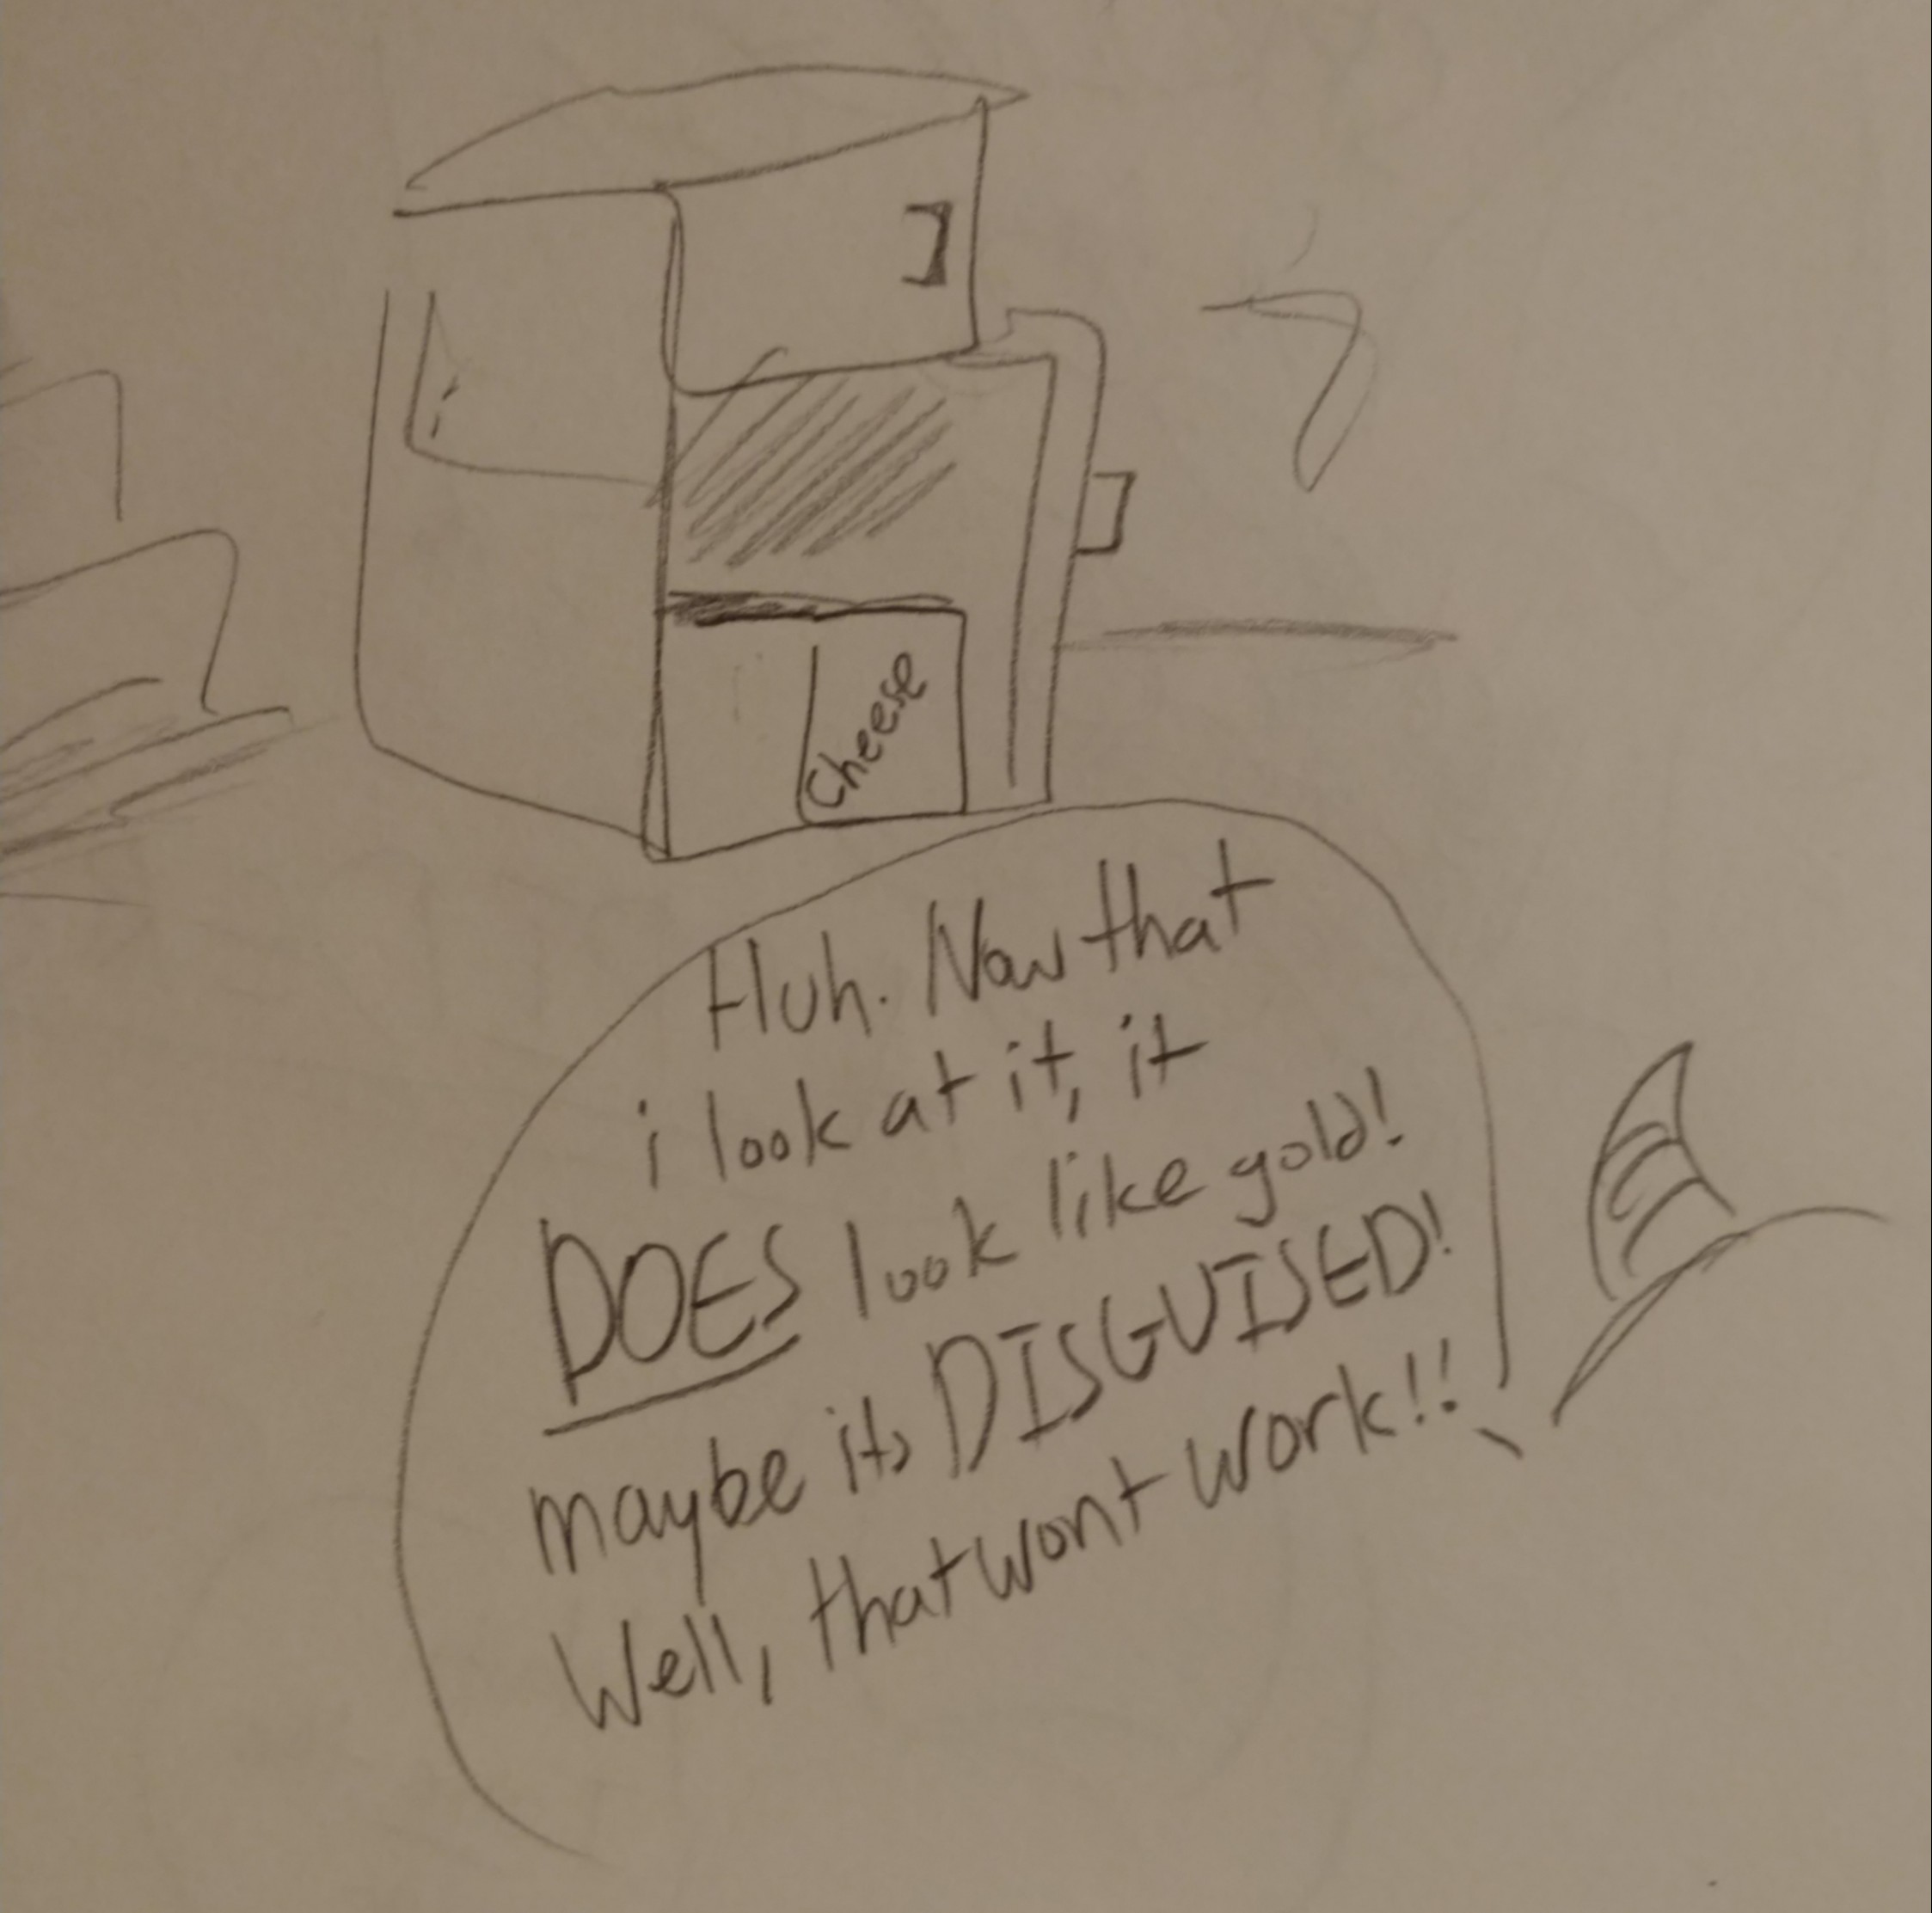 Cheese
Huh. Now that
i look at it, it
DOES look like gold!
maybe its DISGUISED!
Well, that wont work!!